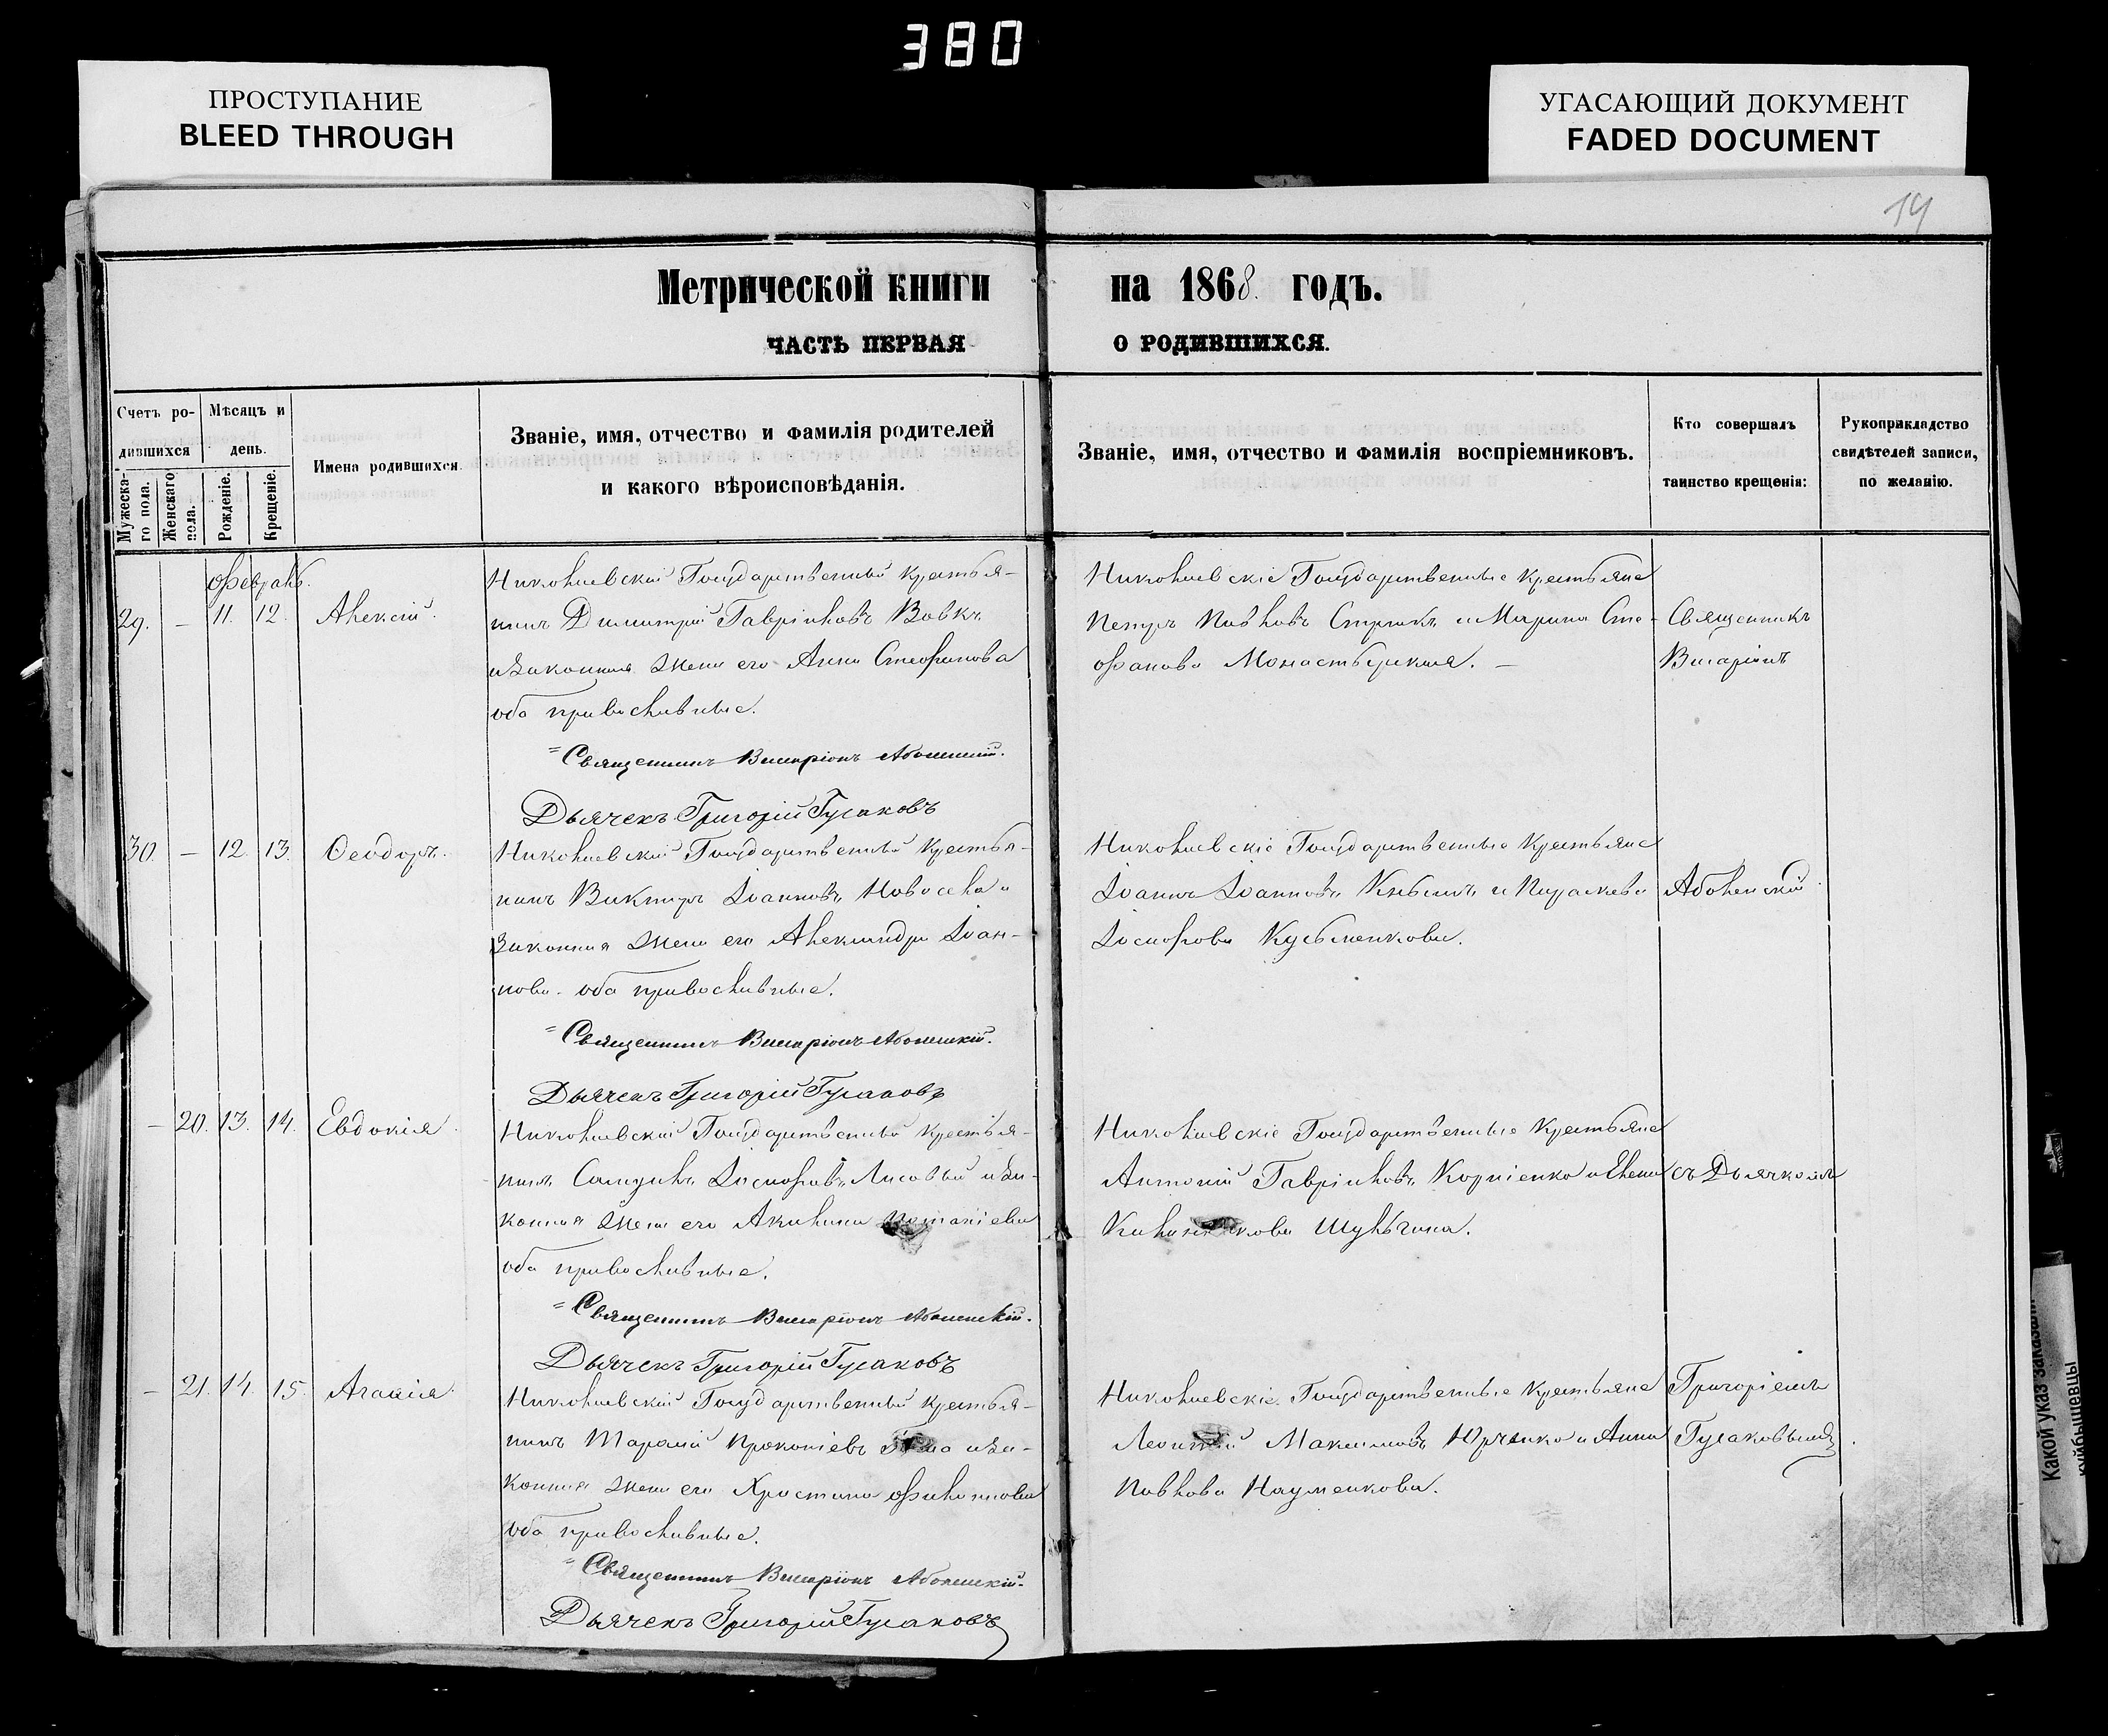 380
ПРОСТУПАНИЕ
BLEED THROUGH
УГАСАЮЩИЙ ДОКУМЕНТ
FADED DOCUMENT
14
Метрической книги на 1868 годъ.
ЧАСТЬ ПЕРВАЯ О РОДИВШИХСЯ.
Счетъ ро-
дившихся
Мужеска-
го пола.
Женскаго
пола.
Мѣсяцъ и
день.
Рожденіе.
Крещеніе.
Имена родившихся.
Званіе, имя, отчество и фамилія родителей
и какого вѣроисповѣданія.
Званіе, имя, отчество и фамилія воспріемниковъ.
Кто совершалъ
таинство крещенія:
Рукоприкладство
свидѣтелей записи,
по желанію.
Февраль.
29. – 11. 12. Алексій.
Николаевскій Государственный крестья-
нинъ Димитрій Гавріиловъ Вовкъ
и законная жена его Анна Стефанова
оба православные.
Священникъ Виссаріонъ
Дьячекъ Григорій Гусаковъ
Николаевскіе Государственные крестьяне
Петръ Павловъ и Марина Сте-
фанова Монастырская. –
Священникъ
Висаріонъ
30. – 12. 13. Ѳеодоръ.
Николаевскій Государственный крестья-
нинъ Викторъ Іоанновъ Новосела и
законная жена его Александра Іоан-
нова. оба православные.
Священникъ Виссаріонъ
Дьячекъ Григорій Гусаковъ
Николаевскіе Государственные крестьяне
Іоаннъ Іоанновъ и Параскева
Іосифова Кузьменкова.
Аболенскій
– 20. 13. 14. Евдокія.
Николаевскій Государственный крестья-
нинъ Самуилъ Іосифовъ Лисовый и за-
конная жена его Акилина
оба православные.
Священникъ Виссаріонъ
Дьячекъ Григорій Гусаковъ
Николаевскіе Государственные крестьяне
Антоній Гавріиловъ Корніенко и Елена
Шульгина.
съ Дьячкомъ
– 21. 14. 15. Агаѳія.
Николаевскій Государственный крестья-
нинъ Тарасій Прокопіевъ и за-
конная жена его Христина Филиппова
оба православные.
Священникъ Виссаріонъ
Дьячекъ Григорій Гусаковъ
Николаевскіе Государственные крестьяне
Леонтій Максимовъ Юрченко и Анна
Павлова Науменкова.
Григоріемъ
Гусаковымъ.
Какой указ заказали
куйбышевцы